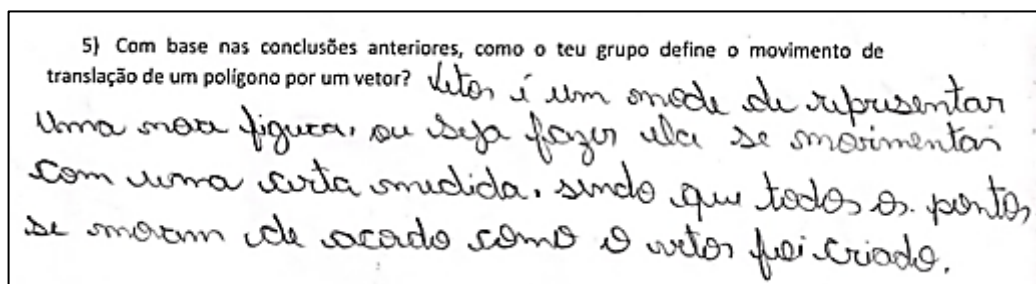 5) Com base nas conclusões anteriores, como o teu grupo define o movimento de
translação de um polígono por um vetor? Vetor é um modo de representar
Uma nova figura, ou seja fazer ela se movimentar
com uma certa medida, sendo que todos os pontos
se movam de acordo como o vetor foi criado.